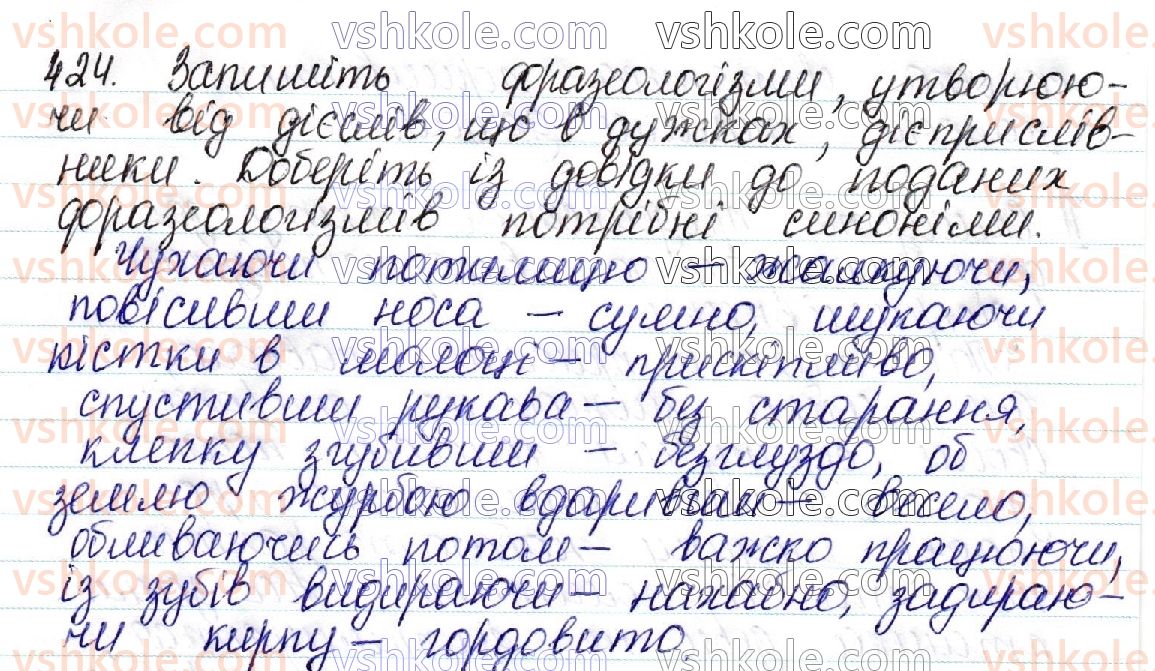 424. Запишіть фразеологізми, утворюю-
чи від дієслів, що в дужках, дієприслів-
ники. Доберіть із довідки до поданих
фразеологізмів потрібні синоніми.
Чухаючи потилицю – жалкуючи,
повісивши носа – сумно, шукаючи
кістки в молоці – прискіпливо,
спустивши рукава – без старання,
клепку згубивши – безглуздо, об
землю журбою вдаривши – весело,
обливаючись потом – важко працюючи,
із зубів видираючи – нахабно, задираю-
чи кирпу – гордовито.